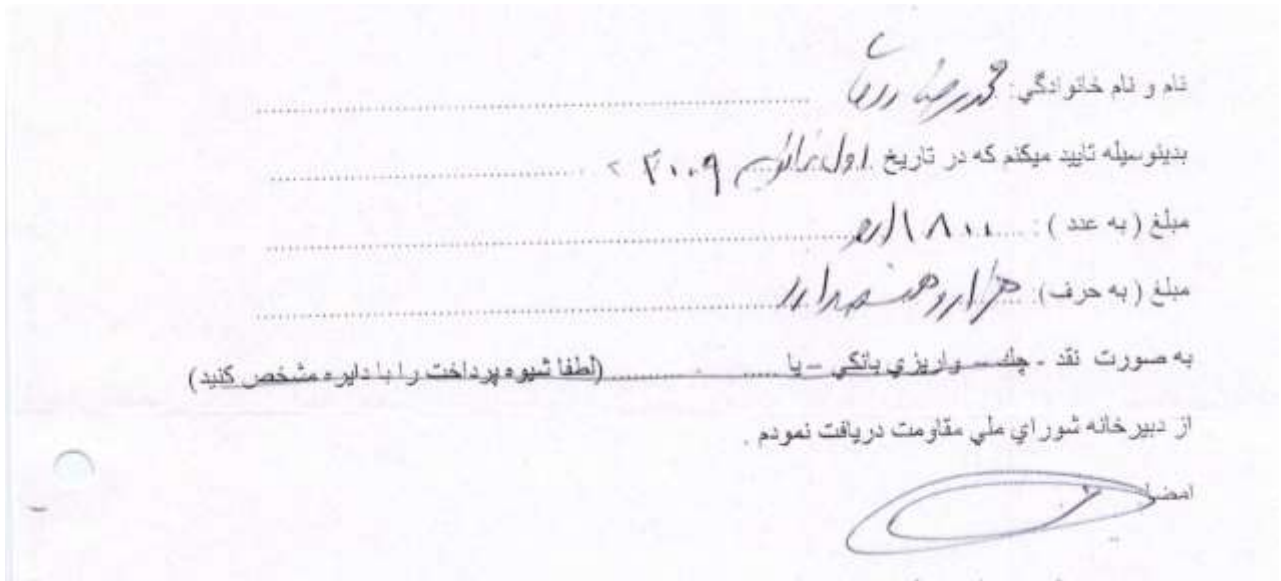 نام و نام خانوادگي: محمدرضا روحاني
بدينوسيله تاييد ميكنم كه در تاريخ اول ژانويه ۲۰۰۹
مبلغ ( به عدد ) : ۱۸۰۰ ارو
مبلغ ( به حرف): هزار و هشتصد ارو
به صورت نقد - چك - واريزي بانكي - يا ............ (لطفا شيوه پرداخت را با دايره مشخص كنيد)
از دبيرخانه شوراي ملي مقاومت دريافت نمودم .
امضا